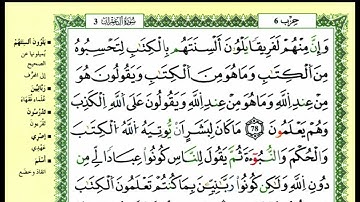 حِزْب 6
سُورَةُ آلِ عِمْرَان 3
وَإِنَّ مِنْهُمْ لَفَرِيقًا يَلْوُۥنَ أَلْسِنَتَهُم بِالْكِتَٰبِ لِتَحْسِبُوهُ
مِنَ ٱلْكِتَٰبِ وَمَا هُوَ مِنَ ٱلْكِتَٰبِ وَيَقُولُونَ هُوَ
مِنْ عِندِ ٱللَّهِ وَمَا هُوَ مِنْ عِندِ ٱللَّهِ وَيَقُولُونَ عَلَى ٱللَّهِ ٱلْكَذِبَ
وَهُمْ يَعْلَمُونَ 78 مَا كَانَ لِبَشَرٍ أَنْ يُوتِيَهُ ٱللَّهُ ٱلْكِتَٰبَ
وَٱلْحُكْمَ وَٱلنُّبُوٓءَةَ ثُمَّ يَقُولَ لِلنَّاسِ كُونُوا عِبَادًا لِي مِن
دُونِ ٱللَّهِ وَلَٰكِن كُونُوا رَبَّٰنِيِّۦنَ بِمَا كُنتُمْ تَعْلَمُونَ ٱلْكِتَٰبَ
يَلْوُونَ أَلْسِنَتَهُمْ
يُمِيلُونَهَا عَنِ
الصَّحِيحِ
إِلَى المُحَرَّفِ
رَبَّانِيِّينَ
عُلَمَاءَ فُقَهَاءَ
تَدْرُسُونَ
تَقْرَءُونَ
إِصْرِي
عَهْدِي
أَسْلَمَ
انْقَادَ وَخَضَعَ